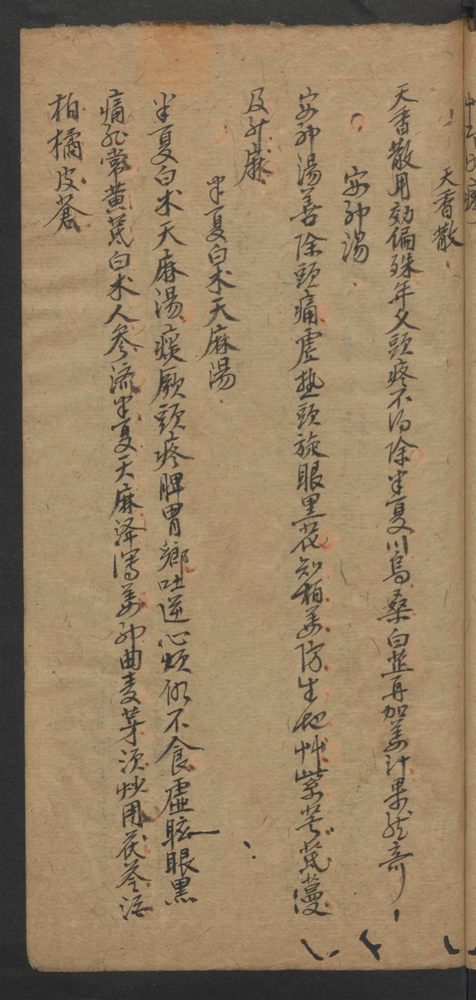 天香散
天香散用効偏殊年久頭疼不得除半夏川烏桑白芷再加姜汁果然奇
安神湯
安神湯善除頭痛虛热頭旋眼黑花知柏羌防生地艸柴芎芪蔓
及升麻
半夏白术天麻湯
半夏白术天麻湯痰厥頭疼脾胃鄉吐逆心煩仍不食虛眩眼黑
痛非常黃芪白术人参流半夏天麻澤瀉姜神曲麦芽須炒用茯苓
柏橘皮蒼